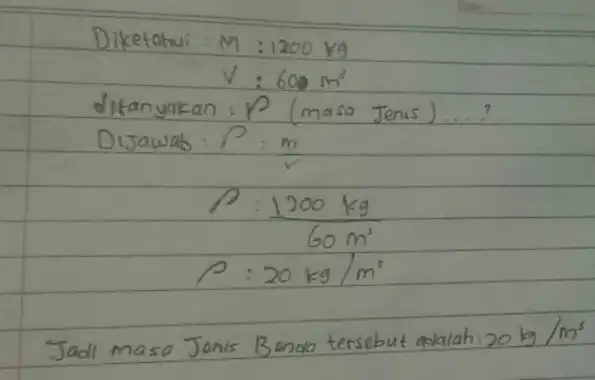 Diketahui : M : 1200 kg
V : 600 m³
ditanyakan : ρ (masa Jenis) ...?
Dijawab : ρ : m
v
ρ : 1200 kg
60 m³
ρ : 20 kg/m³
Jadi masa Jenis Benda tersebut adalah : 20 kg/m³